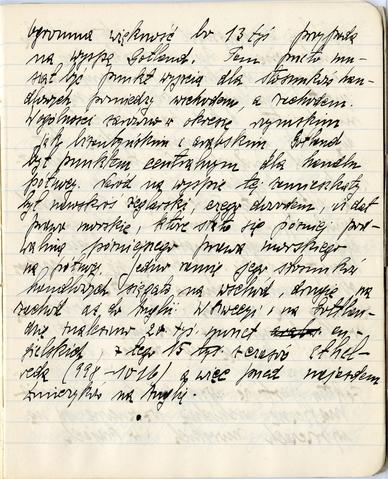 ogromna większość bo 13 tyś przypada
na wyspę Gotland. Tam przeto mu-
siał być punkt wyjścia dla stosunków han-
dlowych pomiędzy wschodem, a zachodem.
W ogólności zarówno w okresie rzymskim
jak bizantyńskim i arabskim Gotland
był punktem centralnym dla handlu
półnay. naród na wyspie tej zamieszkały
był narodem żeglarski, czego dowodem, iż dał
prawo morskie, które stało się później pod-
waliną późniejszego prawa morskiego
na półnoy. Jedno ramię jego stosunków
handlowych sięgało na wschód, drugie na
zachód aż do Anglii. W Szwecyi, i na Gotlan-
die znaleziono 20 tyś monet an-
gielskich, z tego 15 tyś z czasów Ethel-
reda (998-1016) a więc przed najazdem
duńczyków na Anglię.